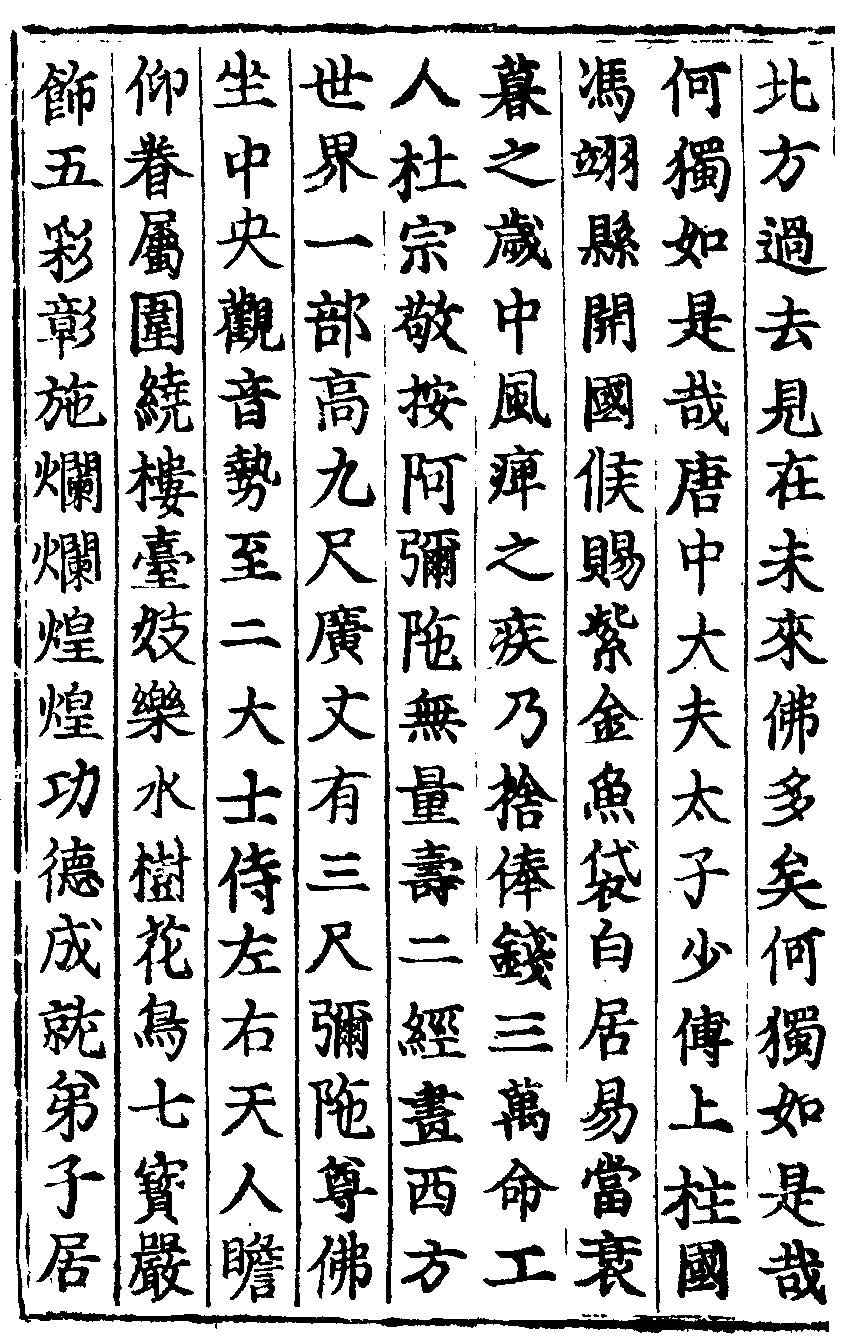 北方過去見在未來佛多矣何獨如是哉
何獨如是哉唐中大夫太子少傅上柱國
馮翊縣開國侯賜紫金魚袋白居易當衰
暮之歲中風痺之疾乃捨俸錢三萬命工
人杜宗敬按阿彌陁無量壽二經畫西方
世界一部高九尺廣丈有三尺彌陁尊佛
坐中央觀音勢至二大士侍左右天人瞻
仰眷屬圍繞樓臺妓樂水樹花鳥七寳嚴
飾五彩彰施爛爛煌煌功德成就弟子居